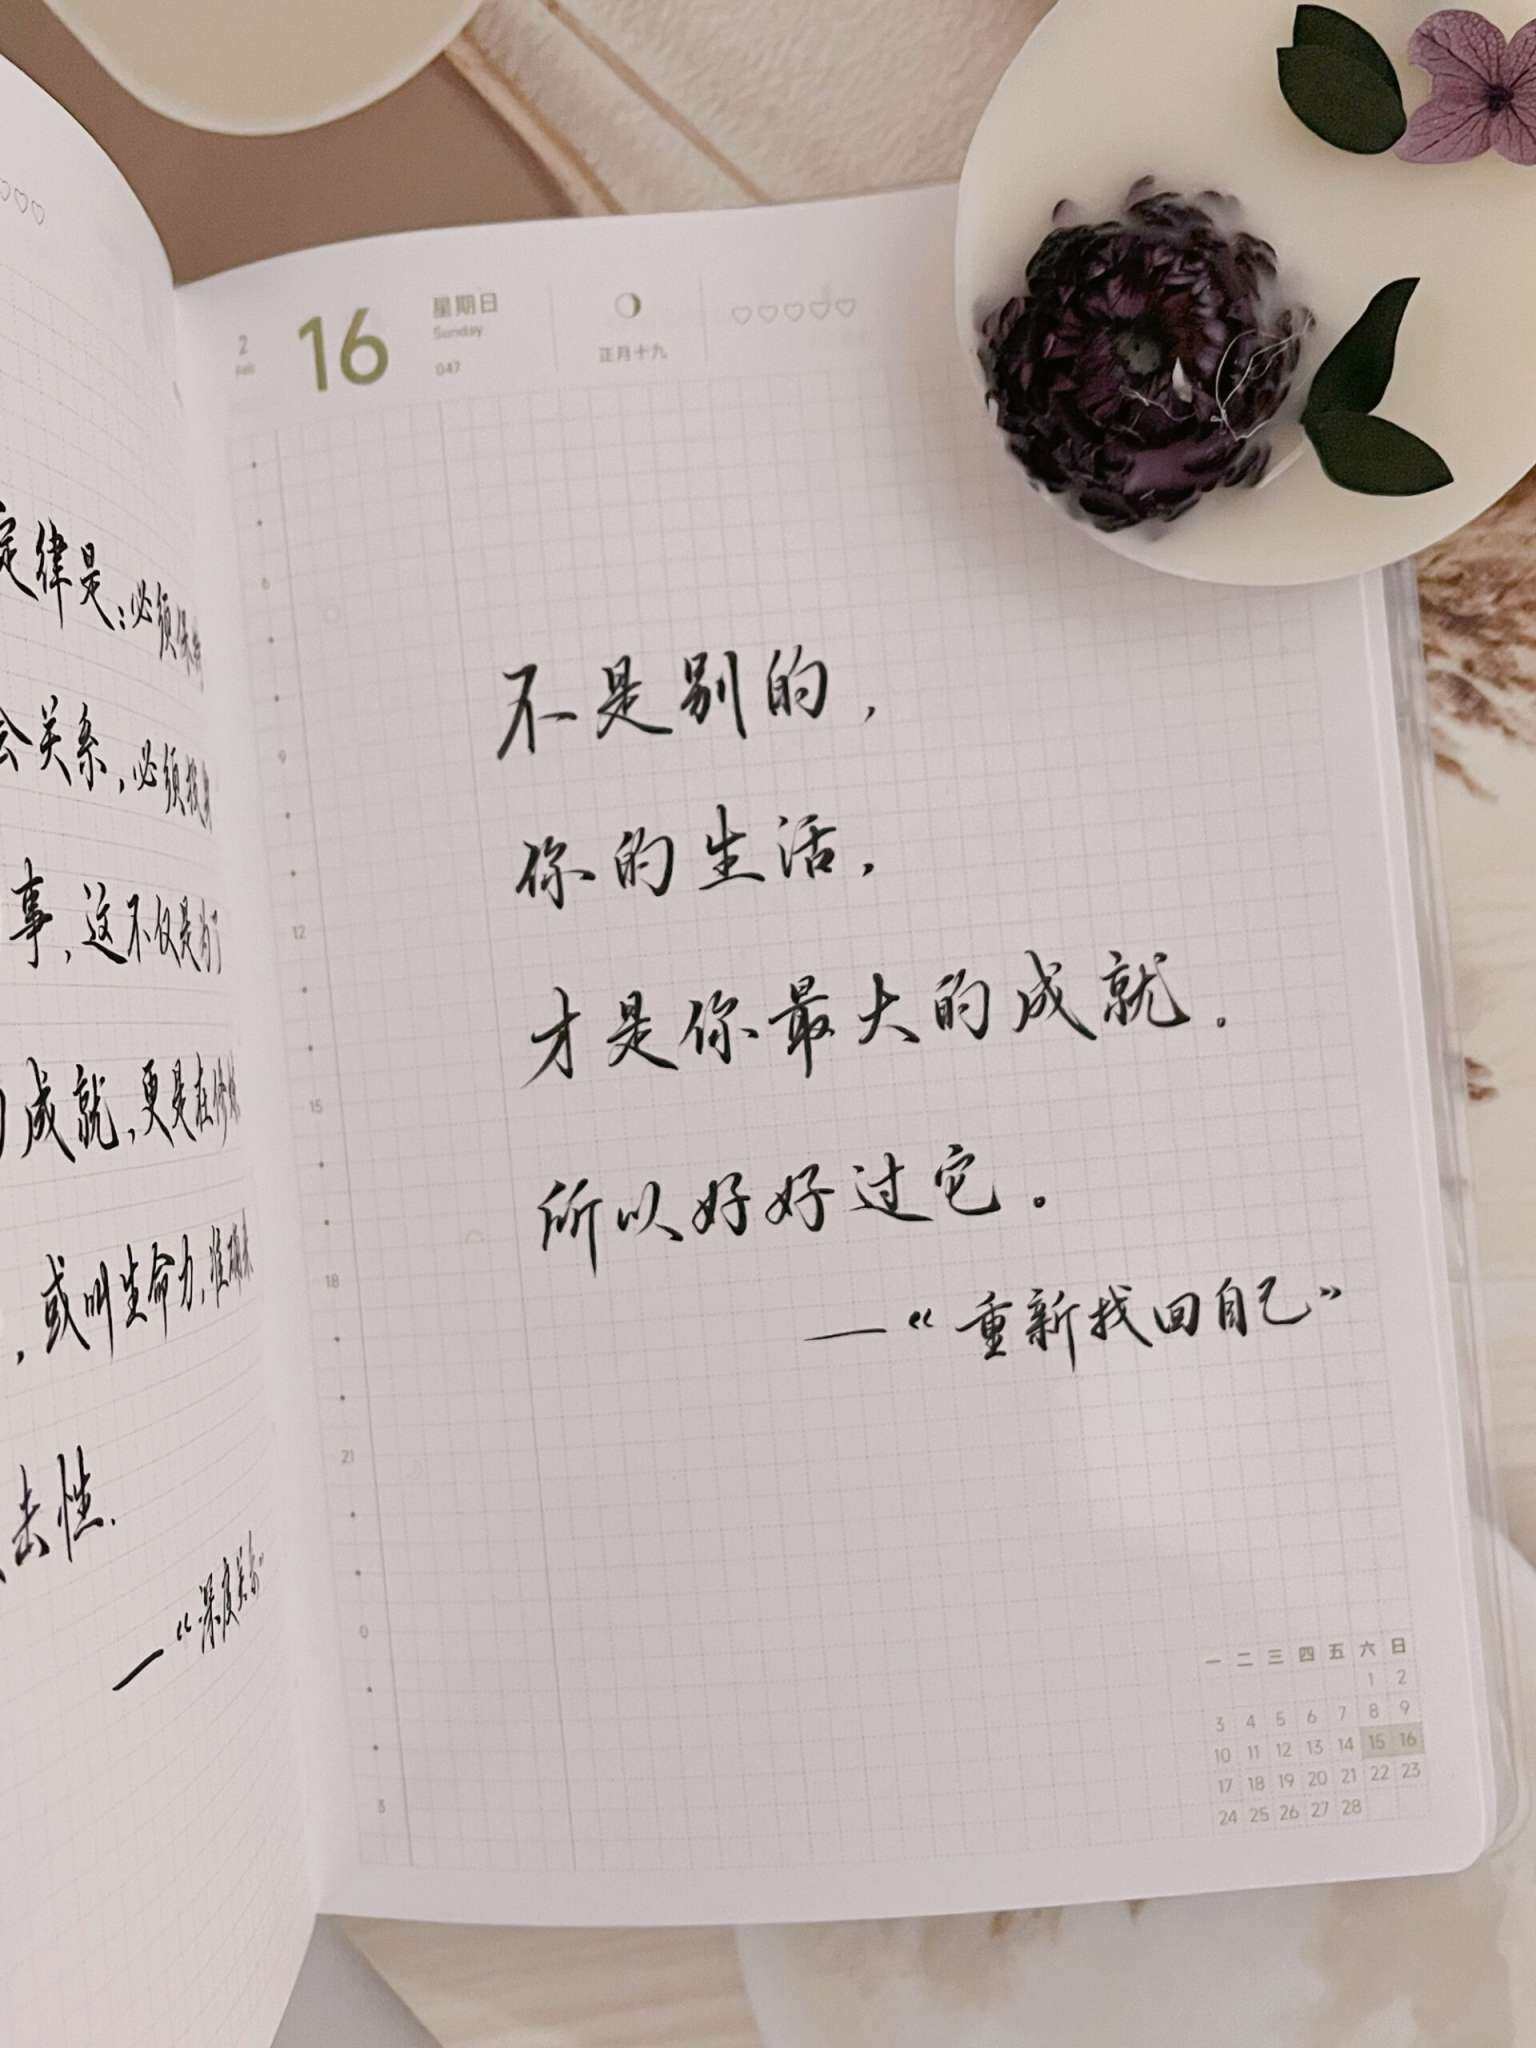 定律是：必须保持
会关系，必须投身
事，这不仅是为了
成就，更是在修炼
，或叫生命力，准确来
去性.
—“深度关系”
2
Feb
16
星期日
Sunday
047
正月十九
6
9
12
15
18
21
0
3
不是别的，
你的生活，
才是你最大的成就。
所以好好过它。
—“重新找回自己”
一 二 三 四 五 六 日
1 2
3 4 5 6 7 8 9
10 11 12 13 14 15 16
17 18 19 20 21 22 23
24 25 26 27 28